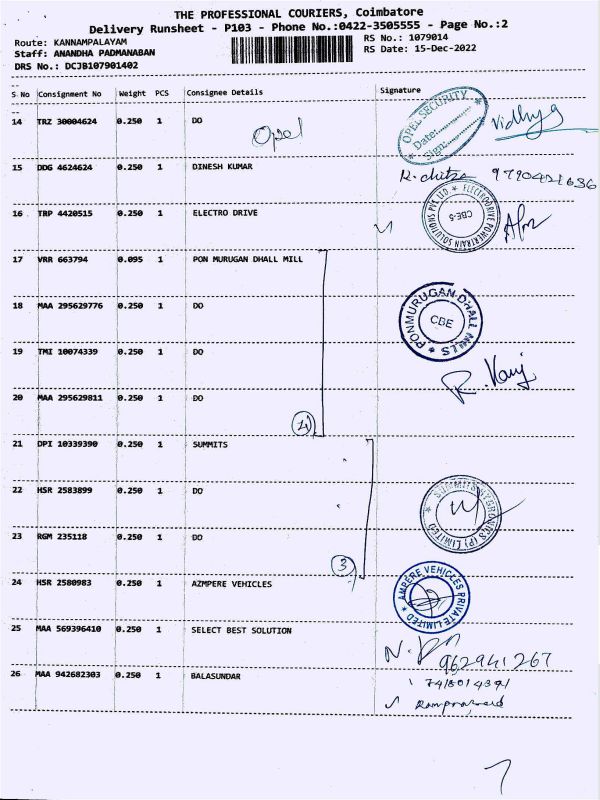 THE PROFESSIONAL COURIERS, Coimbatore
Delivery Runsheet - P103 - Phone No.:0422-3505555 - Page No.:2
Route: KANNAMPALAYAM
RS No.: 1079014
Staff: ANANDHA PADMANABAN
RS Date: 15-Dec-2022
DRS No.: DCJB107901402
S No Consignment No Weight PCS Consignee Details Signature
14 TRZ 30004624 0.250 1 DO
Opel
OPEL SECURITY
Date:
Sign:
Vidhya
15 DDG 4624624 0.250 1 DINESH KUMAR
16 TRP 4420515 0.250 1 ELECTRO DRIVE
ELECTRODRIVE POWERTRAIN SOLUTIONS PVT LTD
CBE-5
17 VRR 663794 0.095 1 PON MURUGAN DHALL MILL
18 MAA 295629776 0.250 1 DO
PONMURUGAN DHALL MILLS
CBE
19 TMI 10074339 0.250 1 DO
20 MAA 295629811 0.250 1 DO
4
21 DPI 10339390 0.250 1 SUMMITS
22 HSR 2583899 0.250 1 DO
SUMMITS HYGRONICS (P) LIMITED
23 RGM 235118 0.250 1 DO
3
24 HSR 2580983 0.250 1 AZMPERE VEHICLES
AMPERE VEHICLES PRIVATE LIMITED
25 MAA 569396410 0.250 1 SELECT BEST SOLUTION
962941267
26 MAA 942682303 0.250 1 BALASUNDAR